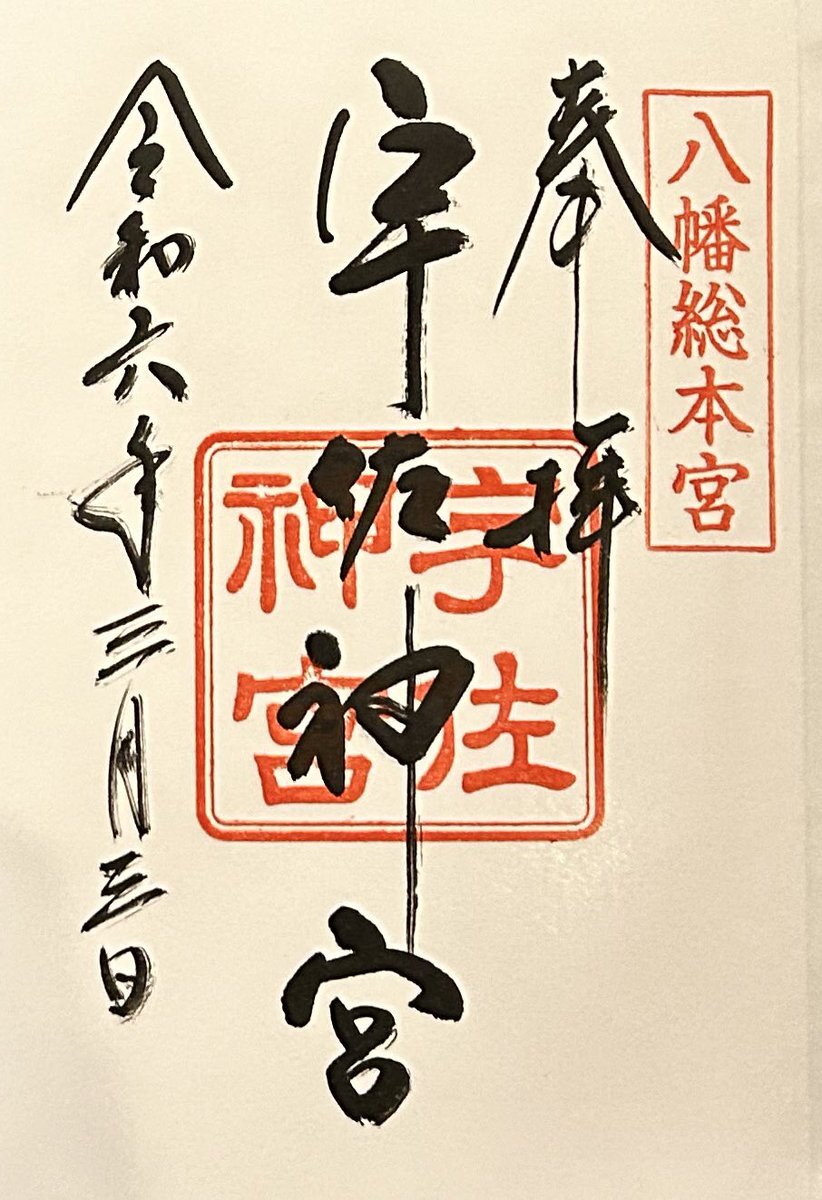 八幡総本宮
奉拝
宇佐神宮
宇佐
神宮
令和六年三月三日